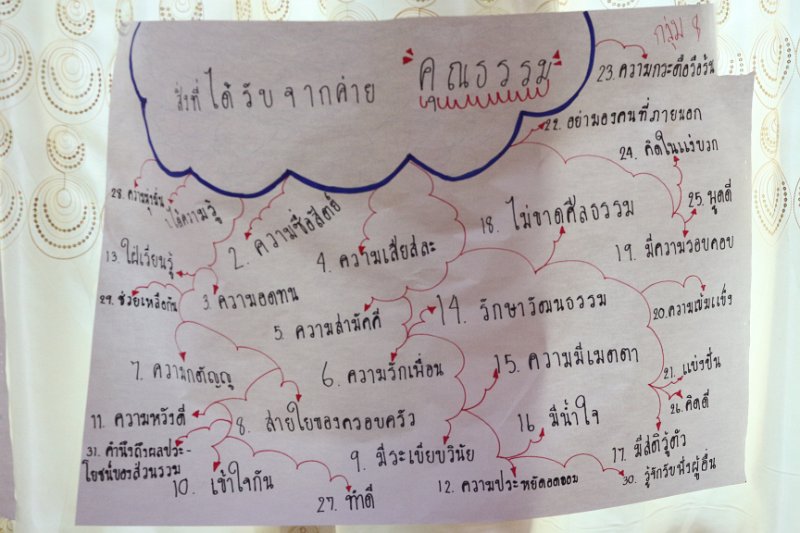 กลุ่ม 8
สิ่งที่ได้รับจากค่าย "คุณธรรม"
1. ได้ความรู้
2. ความซื่อสัตย์
3. ความอดทน
4. ความเสียสละ
5. ความสามัคคี
6. ความรักเพื่อน
7. ความกตัญญู
8. สายใยของครอบครัว
9. มีระเบียบวินัย
10. เข้าใจกัน
11. ความหวังดี
12. ความประหยัดอดออม
13. ใฝ่เรียนรู้
14. รักษาวัฒนธรรม
15. ความมีเมตตา
16 มีน้ำใจ
17. มีสติรู้ตัว
18. ไม่ขาดศีลธรรม
19. มีความรอบคอบ
20. ความเข้มแข็ง
21. แบ่งปัน
22. อย่ามองคนที่ภายนอก
23. ความกระตือรือร้น
24. คิดในแง่บวก
25. พูดดี
26. คิดดี
27. ทำดี
28. ความมุ่งมั่น
29. ช่วยเหลือกัน
30. รู้จักรับฟังผู้อื่น
31. คำนึงถึงผลประ-
โยชน์ของส่วนรวม